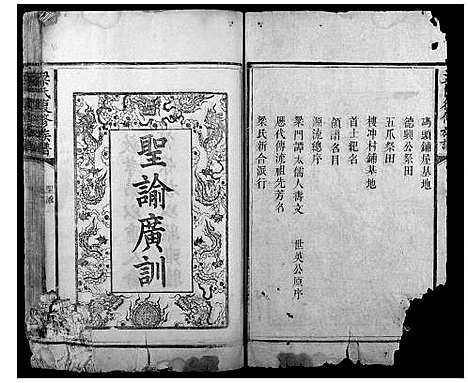 碼頭鋪屋基地
德興公祭田
五爪祭田
樓冲村鋪基地
首士紀名
領譜名目
源流總序
梁門譚太儒人壽文
世英公原序
歷代傳流祖先芳名
梁氏新合派行
聖諭廣訓